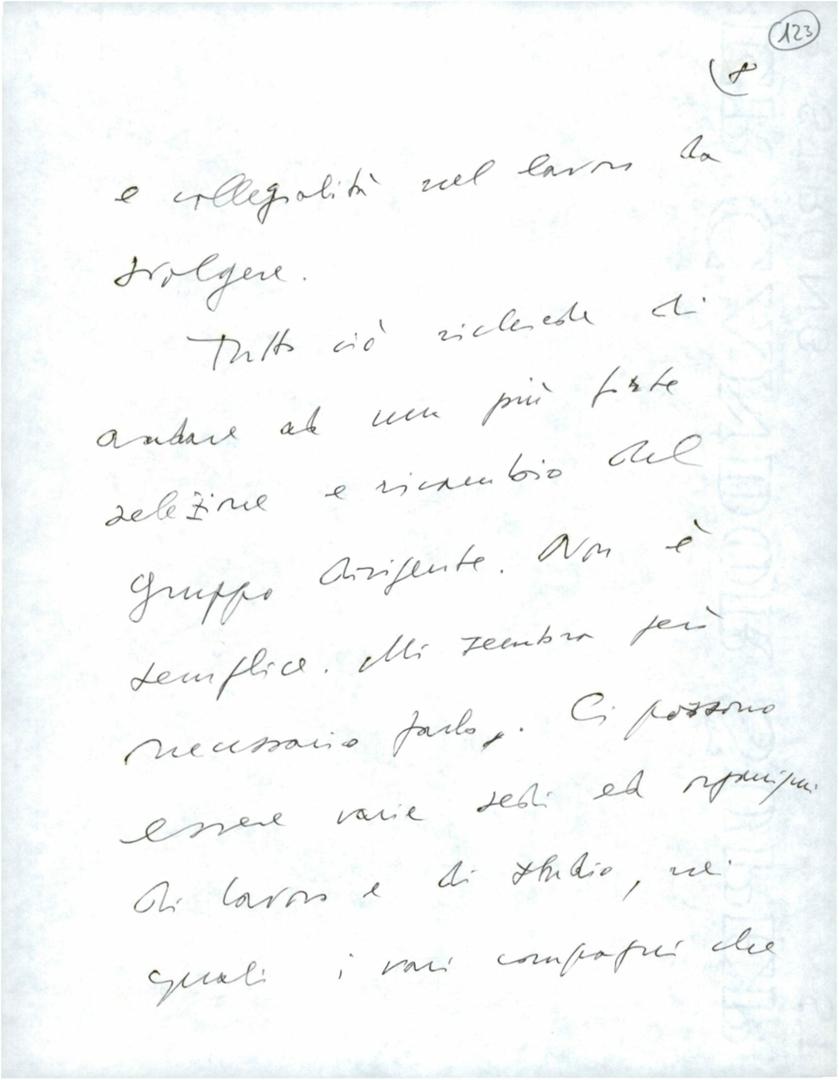 123
8
e collegialità nel lavoro da
svolgere.
Tutto ciò richiede di
andare ad una più forte
selezione e ricambio del
gruppo dirigente. Non è
semplice. Mi sembra però
necessario farlo. Ci possono
essere varie sedi ed organismi
di lavoro e di studio, nei
quali i vari compagni che